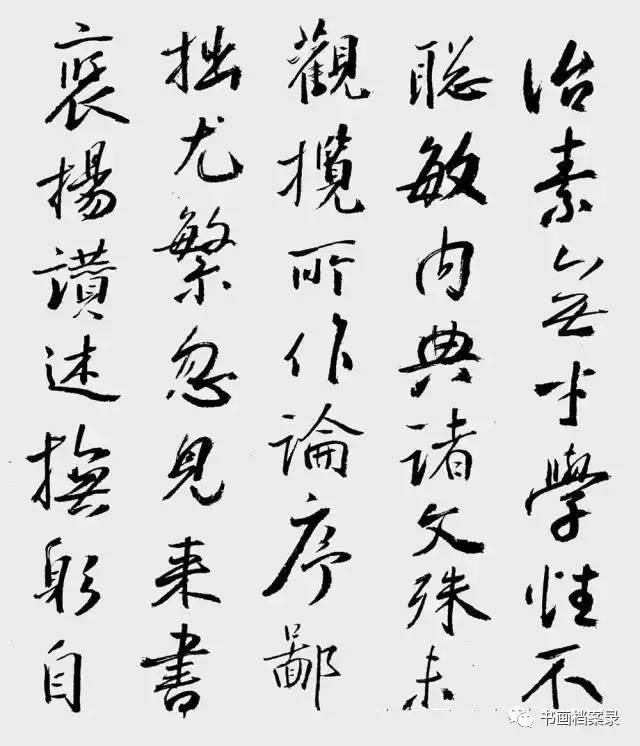 治素無才學性不
聡敏内典諸文殊未
觀攬所作論序鄙
拙尤繁忽見来書
褒揚讃述撫躬自
书画档案录